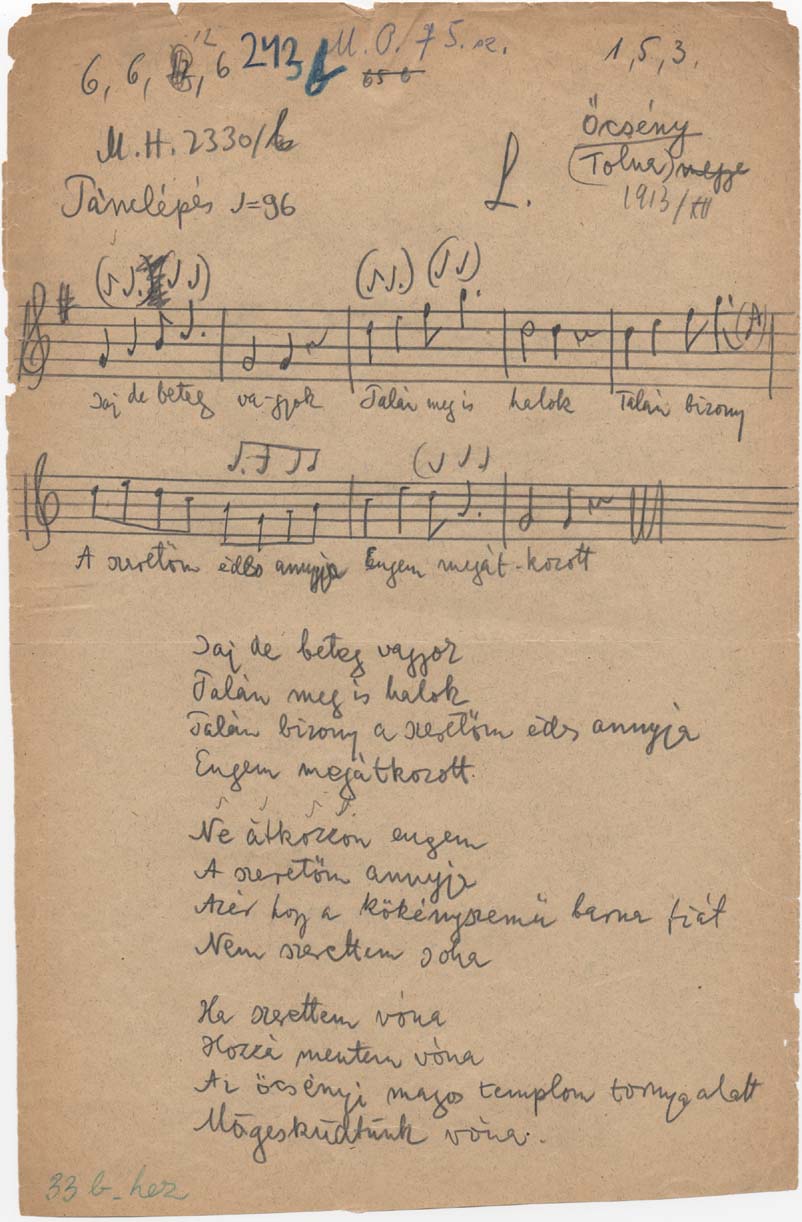 6, 6, 12, 6 243 b M. O. 75. sz. 1, 5, 3.
65 b
M.H. 2330/b
Öcsény
(Tolna) megye
1913/XII
Tánclépés ♩=96
L.
Jaj de beteg va-gyok Talán meg is halok Talán bizony
A szeretöm édes annyja Engem megát-kozott
Jaj de beteg vagyok
Talán meg is halok
Talán bizony a szeretöm édes annyja
Engem megátkozott.
Ne átkozzon engem
A szeretöm annyja
Azér hogy a kökényszemű barna fiát
Nem szerettem soha
Ha szerettem vóna
Hozzá mentem vóna
Az öcsényi magos templom tornya alatt
Mögesküdtünk vóna.
33 b-hez